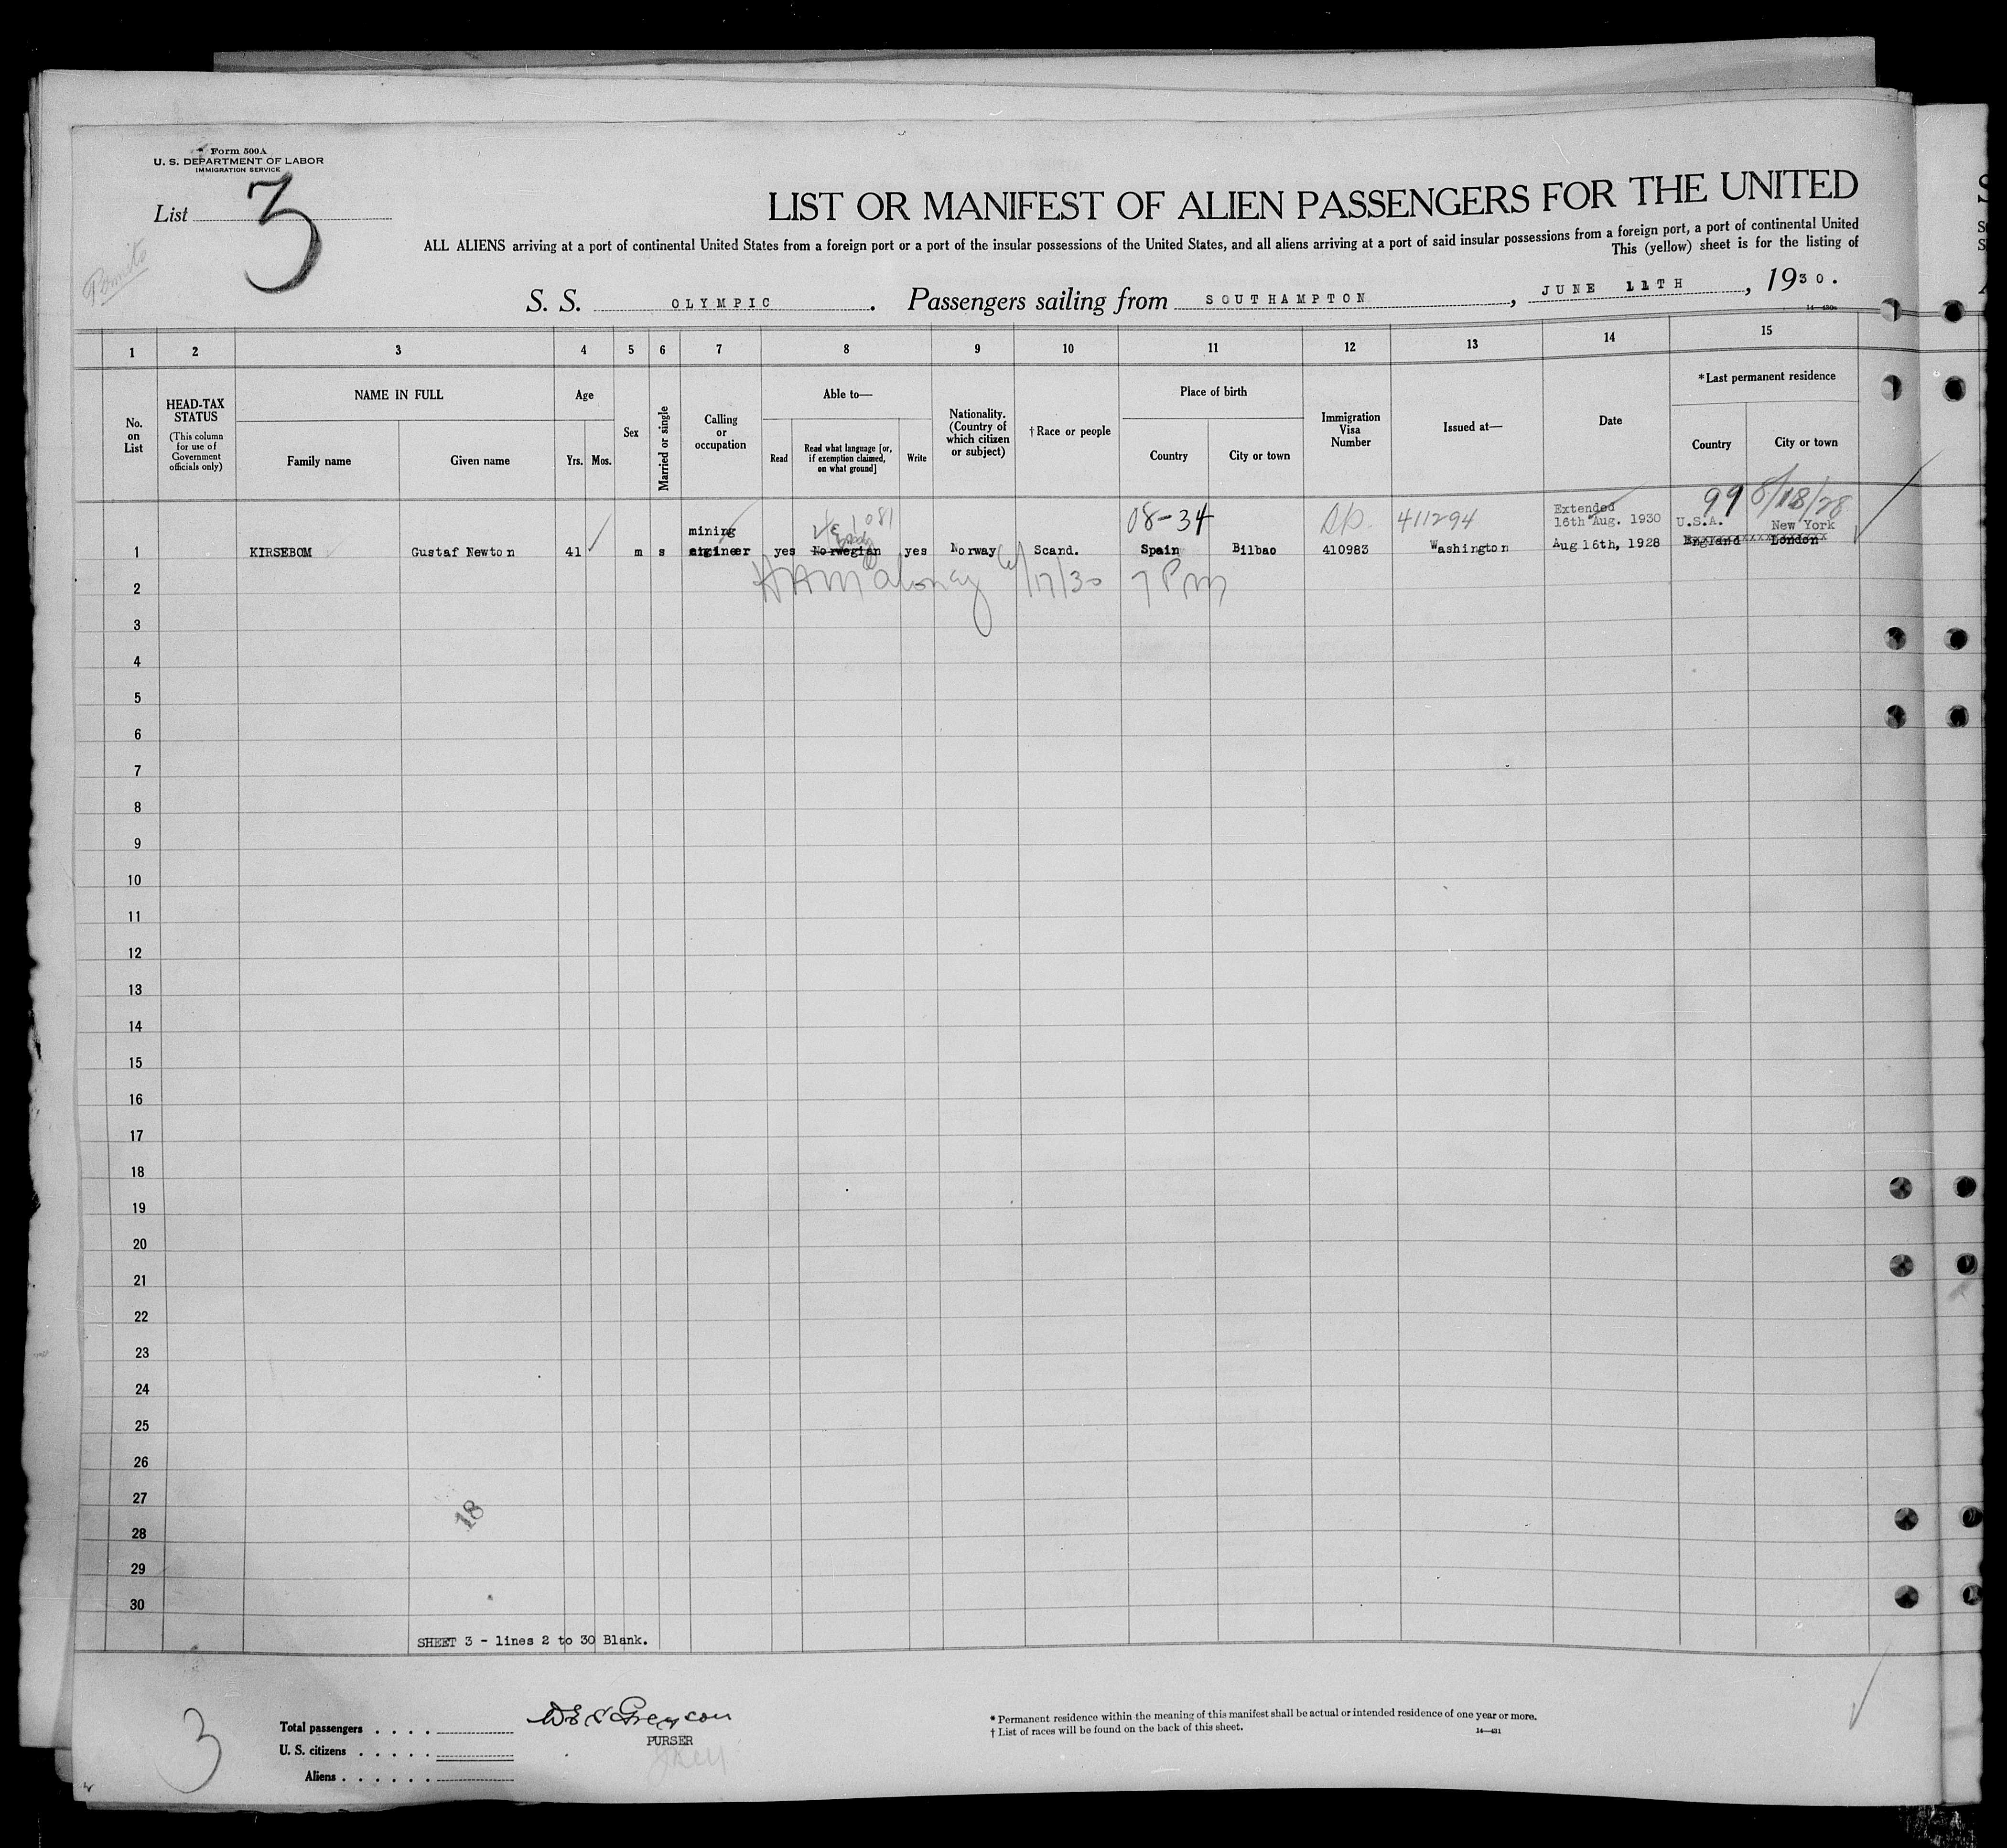 Form 500A
U. S. DEPARTMENT OF LABOR
IMMIGRATION SERVICE
List 3
LIST OR MANIFEST OF ALIEN PASSENGERS FOR THE UNITED
ALL ALIENS arriving at a port of continental United States from a foreign port or a port of the insular possessions of the United States, and all aliens arriving at a port of said insular possessions from a foreign port, a port of continental United
This (yellow) sheet is for the listing of
S. S. OLYMPIC. Passengers sailing from SOUTHAMPTON, JUNE 11TH, 1930.
1 2 3 4 5 6 7 8 9 10 11 12 13 14 15
No. on List
HEAD-TAX STATUS
(This column for use of Government officials only)
NAME IN FULL
Family name
Given name
Age
Yrs. Mos.
Sex
Married or single
Calling or occupation
Able to—
Read
Read what language [or, if exemption claimed, on what ground]
Write
Nationality. (Country of which citizen or subject)
† Race or people
Place of birth
Country
City or town
Immigration Visa Number
Issued at—
Date
* Last permanent residence
Country
City or town
08-34
411294
Extended
99 8/18/28
mining
16th Aug. 1930 U.S.A. New York
1 KIRSEBOM Gustaf Newton 41 m s engineer yes Norwegian yes Norway Scand. Spain Bilbao 410983 Washington Aug 16th, 1928 England London
2 HAMaloney 6/17/30 7 Pm
3
4
5
6
7
8
9
10
11
12
13
14
15
16
17
18
19
20
21
22
23
24
25
26
27
18
28
29
30
SHEET 3 - lines 2 to 30 Blank.
3
Total passengers . . . .
U. S. citizens . . . . .
Aliens . . . . . .
PURSER
* Permanent residence within the meaning of this manifest shall be actual or intended residence of one year or more.
† List of races will be found on the back of this sheet.
14—431